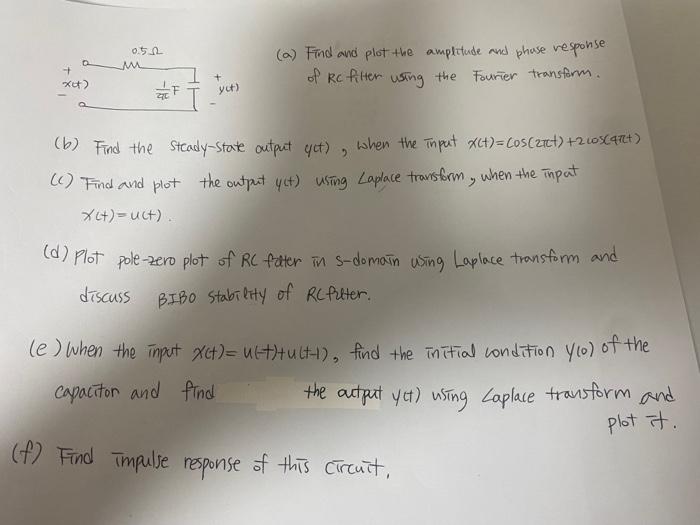 0.5Ω
+
x(t)
-
1/2π F
+
y(t)
-
(a) Find and plot the amplitude and phase response
of RC filter using the Fourier transform.
(b) Find the steady-state output y(t), when the input x(t)=cos(2πt)+2cos(4πt)
(c) Find and plot the output y(t) using Laplace transform, when the input
x(t)=u(t).
(d) Plot pole-zero plot of RC filter in s-domain using Laplace transform and
discuss BIBO stability of RC filter.
(e) When the input x(t)=u(-t)+u(t-1), find the initial condition y(0) of the
capacitor and find the output y(t) using Laplace transform and
plot it.
(f) Find impulse response of this circuit,